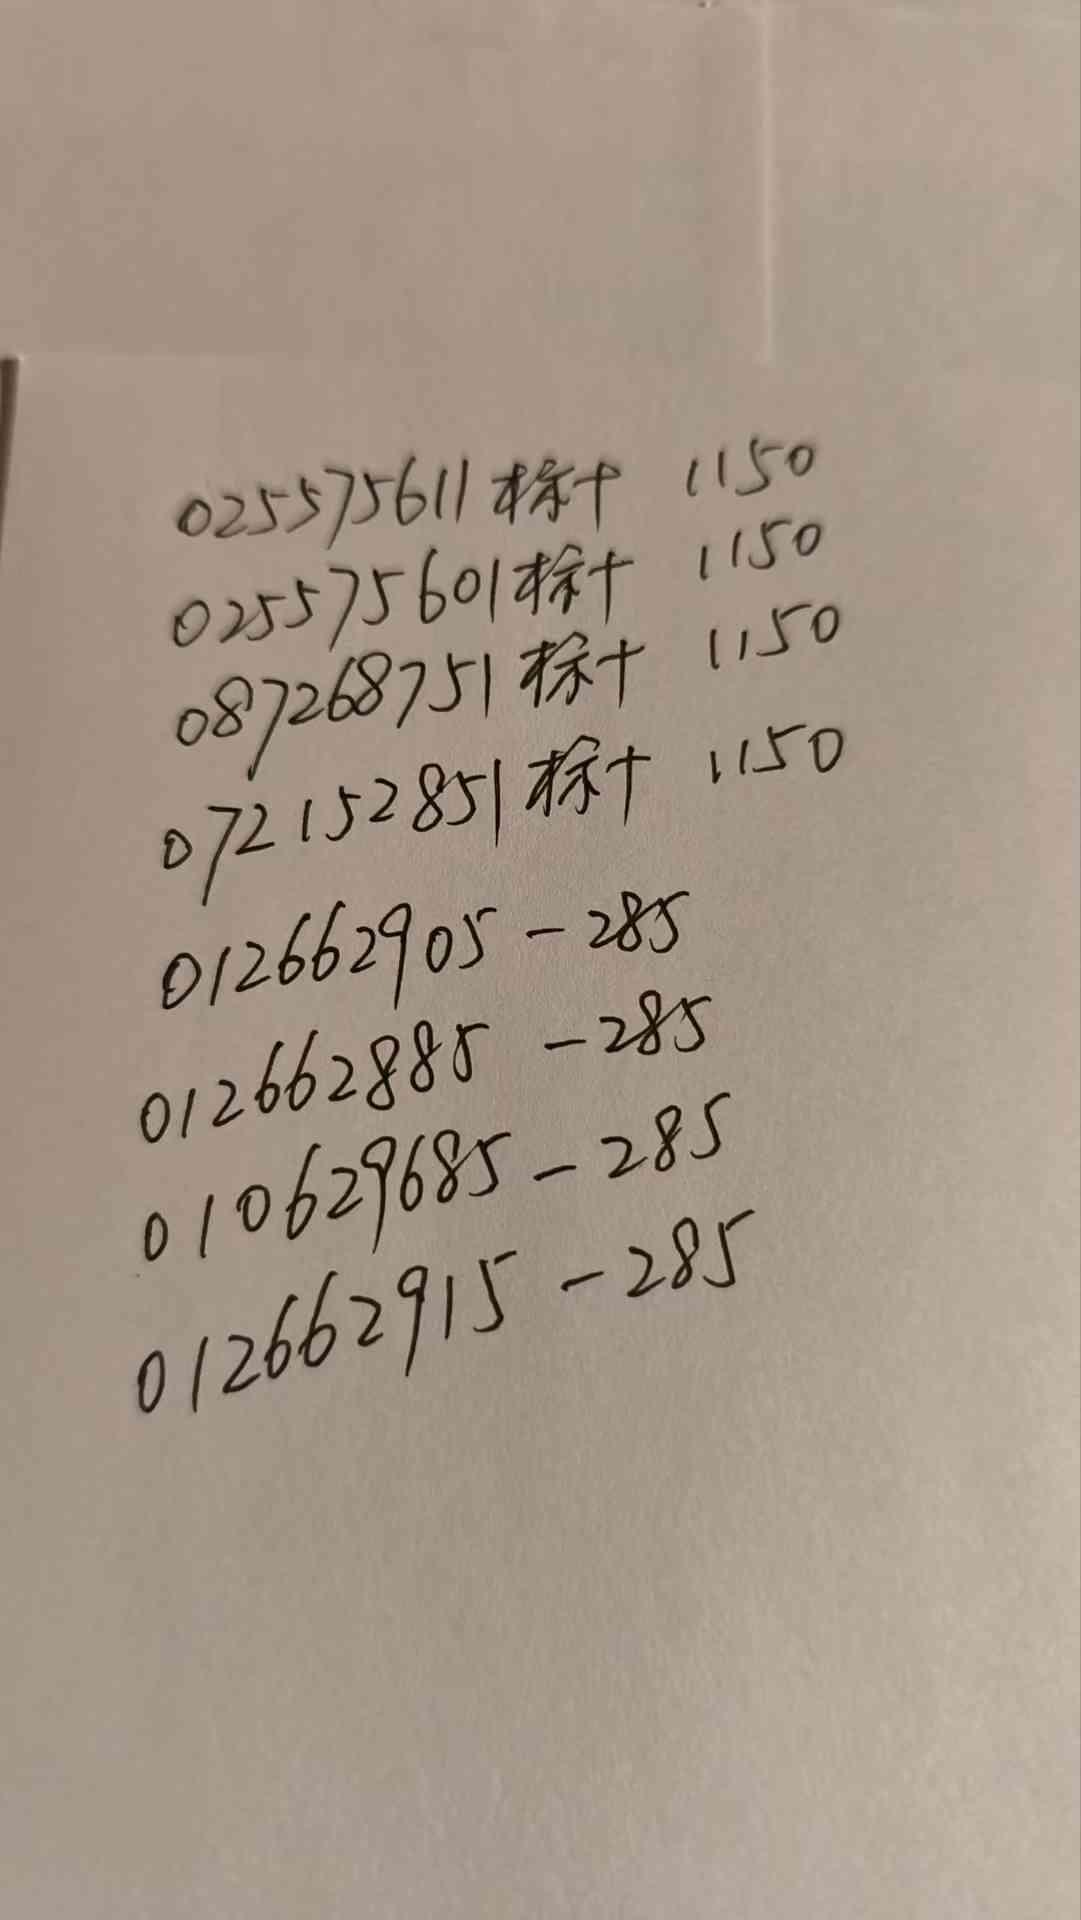 025575611标十 1150
025575601标十 1150
087268751标十 1150
072152851标十 1150
012662905-285
012662885-285
010629685-285
012662915-285